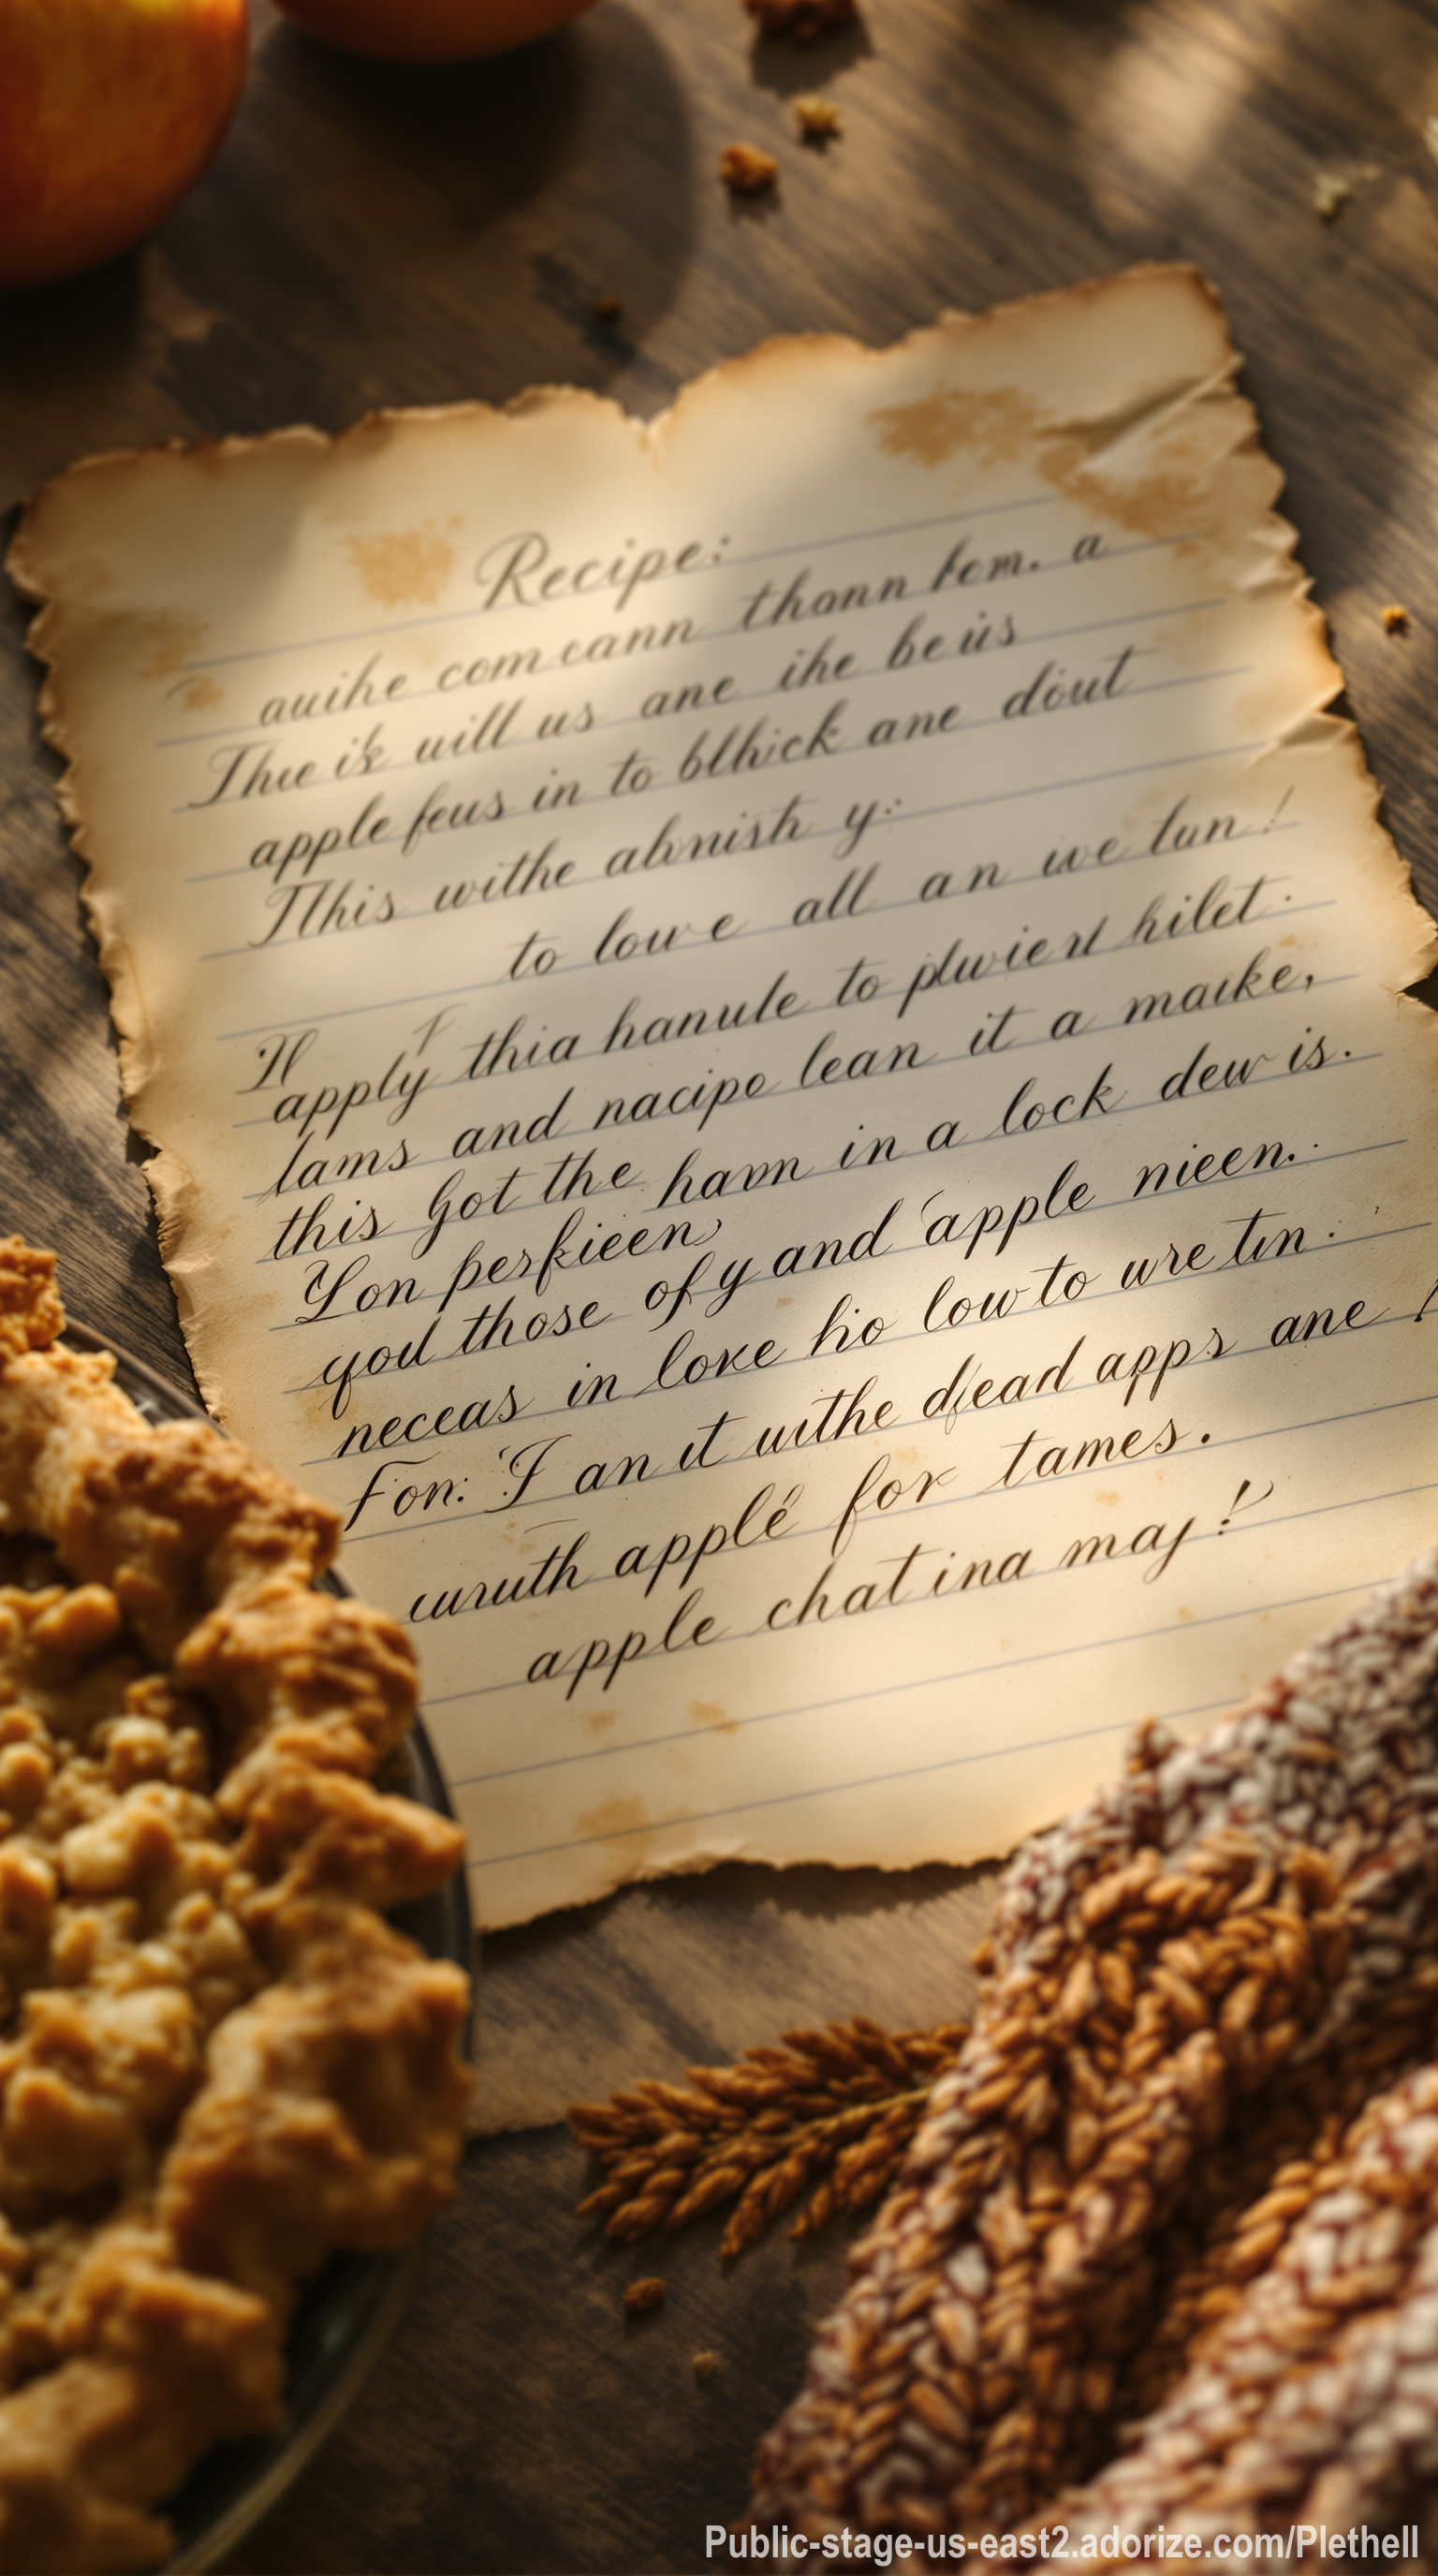 Recipe:
auihe com cann thann fom. a
Thue is will us ane ihe beus
apple feus in to blhick ane dout
This withe abnish y:
to low e all an we tun!
If
apply thia hanule to pluviert hilet.
lams and nacipo lean it a maike,
this Got the havn in a lock dew is.
Yon perkieen
qod those of y and apple nieen.
neceas in loke ho low to ure tin.
Fon: I an it withe dfead apps ane !
wruth applé for tames.
apple chat ina maj!
Public-stage-us-east2.adorize.com/Plethell